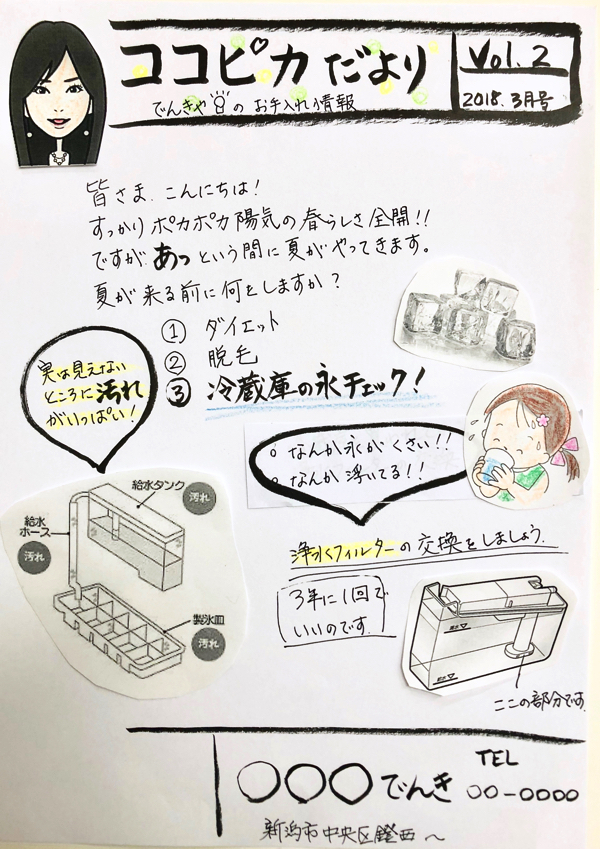 ココピカだより
Vol.2
2018.3月号
でんきやのお手入れ情報
皆さま、こんにちは!
すっかりポカポカ陽気の春らしさ全開!!
ですが、あっという間に夏がやってきます。
夏が来る前に何をしますか?
① ダイエット
② 脱毛
③ 冷蔵庫の氷チェック!
実は見えない
ところに汚れ
がいっぱい!
。なんか氷がくさい!!
。なんか浮いてる!!
給水タンク
汚れ
給水
ホース
汚れ
製氷皿
汚れ
浄水フィルターの交換をしましょう。
3年に1回で
いいのです。
ここの部分です。
〇〇〇でんき
TEL
〇〇-〇〇〇〇
新潟市中央区鐙西~